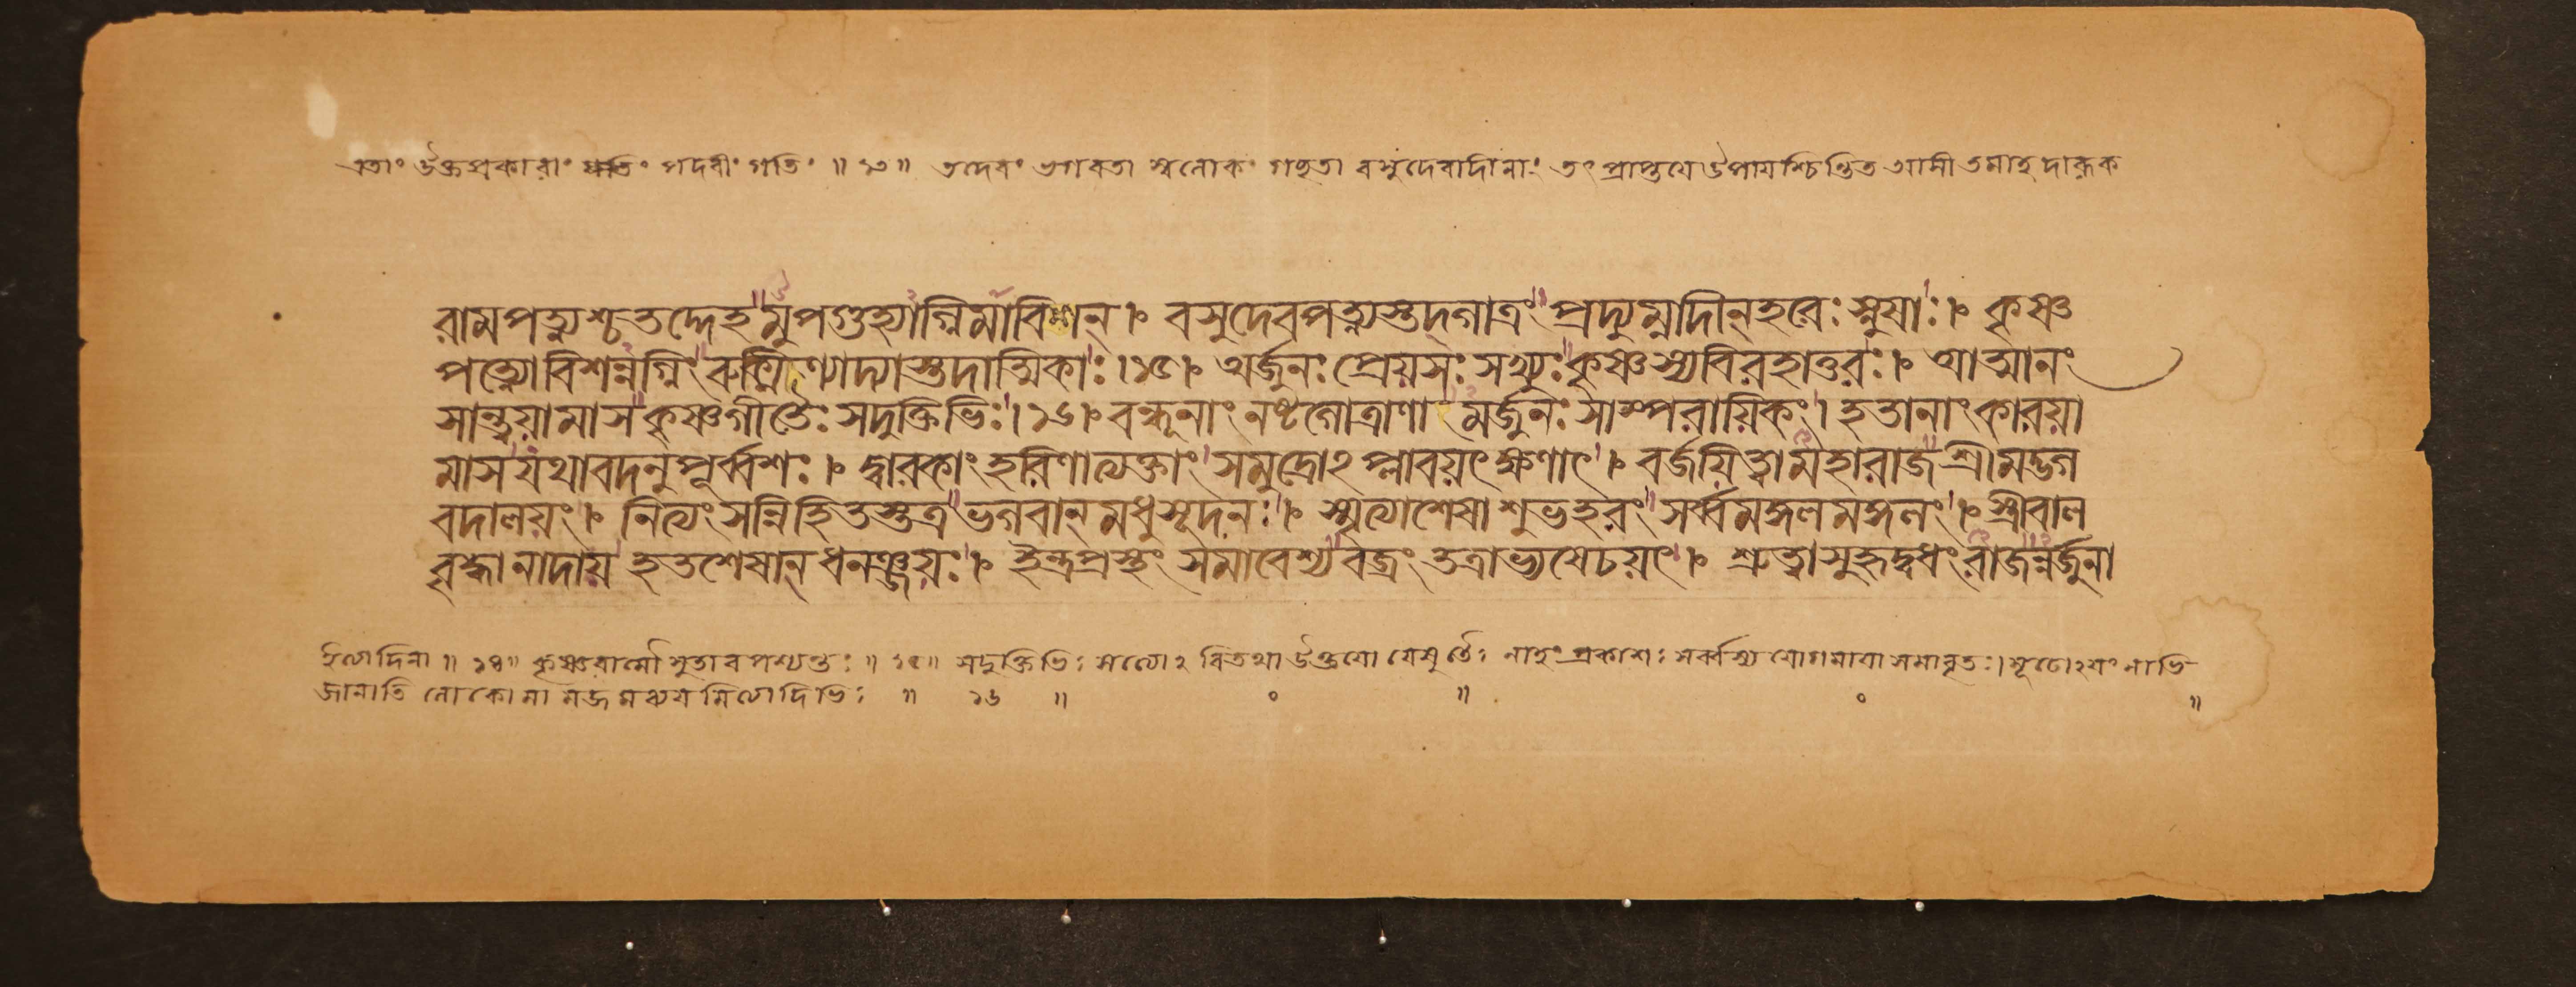 এতাং উক্তপ্রকারাং গতিং পদবীং গতিং ॥ ১৩ ॥ তদেবং ভগবতা স্বলোকং গচ্ছতা বসুদেবাদীনাং তৎ প্রাপ্তয়ে উপায়শ্চিন্তিত আসীত্তমাহ দারুক
রামপত্ন্যশ্চতদ্দেহমুপগুহ্যাগ্নিমাবিশন্ । বসুদেবপত্ন্যস্তদ্গাত্রং প্রদ্যুম্নাদীন্হরেঃ স্নুষাঃ । কৃষ্ণ
পত্ন্যোবিশন্নগ্নিং রুক্মিণ্যাদ্যাস্তদাত্মিকাঃ ।১৫। অর্জুনঃ প্রেয়সঃ সখ্যুঃ কৃষ্ণস্যবিরহাতুরঃ । আত্মানং
সান্ত্বয়ামাস কৃষ্ণগীতৈঃ সদুক্তিভিঃ ।১৬। বন্ধূনাং নষ্টগোত্রাণামর্জুনঃ সাম্পরায়িকং । হতানাং কারয়া
মাস যথাবদনুপূর্ব্বশঃ । দ্বারকাং হরিণাত্যক্তাং সমুদ্রোঽপ্লাবয়ৎক্ষণাৎ । বর্জয়িত্বামহারাজ শ্রীমদ্ভগ
বদালয়ং । নিত্যং সন্নিহিতস্তত্র ভগবান্ মধুসূদনঃ । স্মৃত্যাশেষাশুভহরং সর্ব্বমঙ্গলমঙ্গলং । স্ত্রীবাল
বৃদ্ধানাদায় হতশেষান্ ধনঞ্জয়ঃ । ইন্দ্রপ্রস্থং সমাবেশ্য বজ্রং তত্রাভ্যষেচয়ৎ । শ্রুত্বাসুহৃদ্বধং রাজন্নর্জুনা
ইত্যাদিনা ॥ ১৪ ॥ কৃষ্ণরামৌ সুতাবপশ্যন্তঃ ॥ ১৫ ॥ সদুক্তিভিঃ সত্যোঽ বিতথা উক্তয়ো যেষু তৈঃ নাহং প্রকাশঃ সর্ব্বস্য যোগমায়া সমাবৃতঃ । মূঢোঽয়ং নাভি
জানাতি লোকো মামজমব্যয়মিত্যাদিভিঃ ॥ ১৬ ॥ ॰ ॥ ॰ ॥